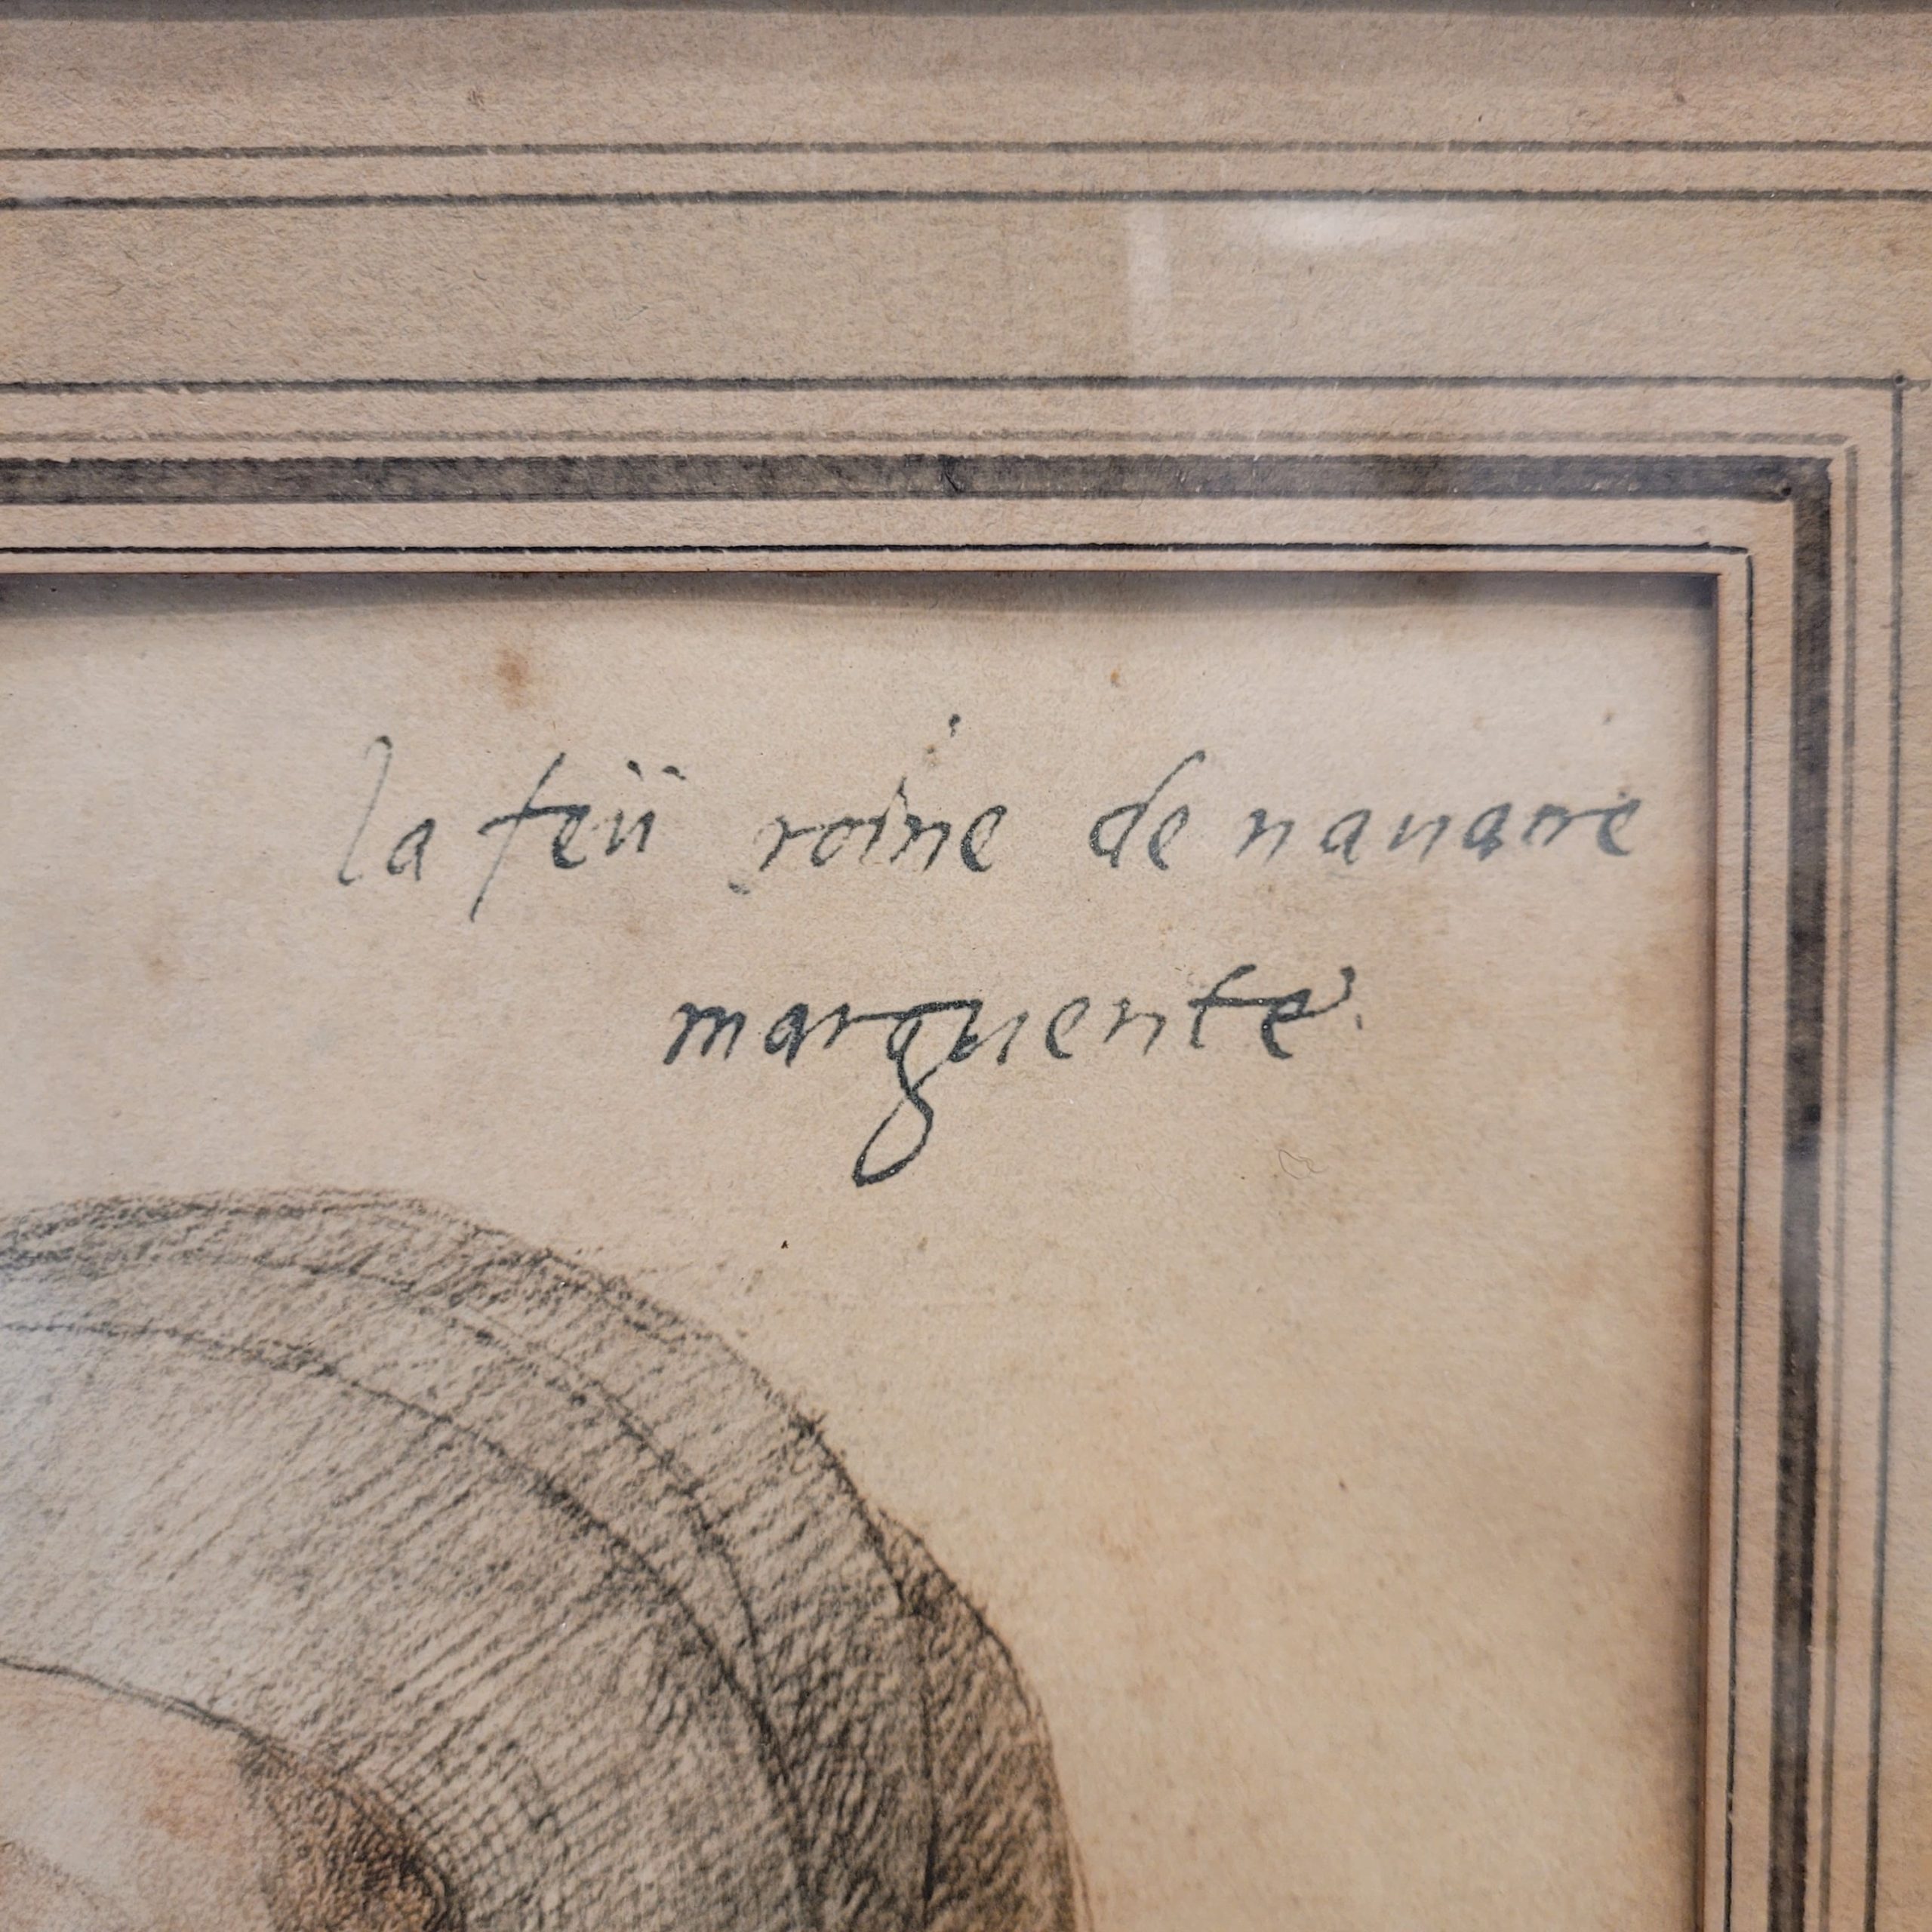 la feü roine de nauarre
marguerite